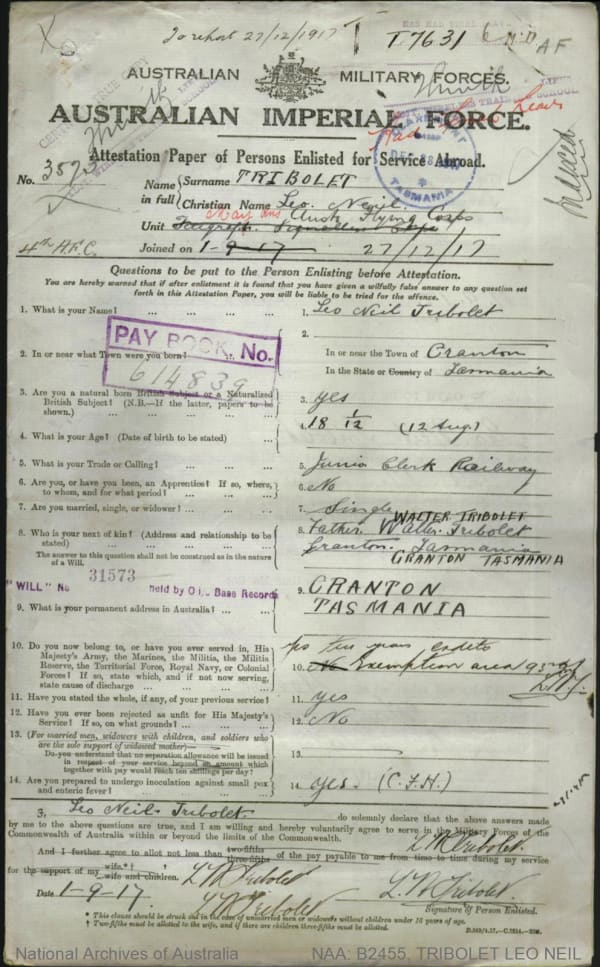 To report 27/12/1917
T 7631
A F
AUSTRALIAN MILITARY FORCES.
AUSTRALIAN IMPERIAL FORCE.
Attestation Paper of Persons Enlisted for Service Abroad.
No. 3573
Name in full { Surname TRIBOLET
Christian Name Leo. Neil
Aust Flying Corps
Unit
4th A.F.C.
Joined on 1-9-17 27/12/17
TASMANIA
Questions to be put to the Person Enlisting before Attestation.
You are hereby warned that if after enlistment it is found that you have given a wilfully false answer to any question set
forth in this Attestation Paper, you will be liable to be tried for the offence.
1. What is your Name? ... ... 1. Leo Neil Tribolet
PAY BOOK No.
614839
2. In or near what Town were you born? ... In or near the Town of Granton
In the State or Country of Tasmania
3. Are you a natural born British Subject or a Naturalized
British Subject? (N.B.—If the latter, papers to be
shown.) ... 3. yes
4. What is your Age? (Date of birth to be stated) ... 4. 18 1/12 (12 Aug)
5. What is your Trade or Calling? ... ... ... 5. Junior Clerk Railway
6. Are you, or have you been, an Apprentice? If so, where,
to whom, and for what period? ... ... 6. No
7. Are you married, single, or widower? ... ... 7. Single
8. Who is your next of kin? (Address and relationship to be
stated) ... 8. Father Walter Tribolet
WALTER TRIBOLET
Granton. Tasmania
GRANTON TASMANIA
The answer to this question shall not be construed as in the nature
of a Will.
"WILL" No 31573 held by O i/c Base Records
9. What is your permanent address in Australia? ... 9. GRANTON
TASMANIA
10. Do you now belong to, or have you ever served in, His
Majesty's Army, the Marines, the Militia, the Militia
Reserve, the Territorial Force, Royal Navy, or Colonial
Forces? If so, state which, and if not now serving,
state cause of discharge ... ... 10. No Exemption area 93
cadets
11. Have you stated the whole, if any, of your previous service? 11. yes
12. Have you ever been rejected as unfit for His Majesty's
Service? If so, on what grounds? ... 12. No
13. (For married men, widowers with children, and soldiers who
are the sole support of widowed mother)—
Do you understand that no separation allowance will be issued
in respect of your service beyond an amount which
together with pay would reach ten shillings per day? 13.
14. Are you prepared to undergo inoculation against small pox
and enteric fever? ... 14. yes.
I, Leo Neil Tribolet do solemnly declare that the above answers made
by me to the above questions are true, and I am willing and hereby voluntarily agree to serve in the Military Forces of the
Commonwealth of Australia within or beyond the limits of the Commonwealth.
L N Tribolet.
And I further agree to allot not less than two-fifths three-fifths of the pay payable to me from time to time during my service
for the support of my wife* † wife and children.
L N Tribolet
Date 1-9-17 L N Tribolet L. N Tribolet.
Signature of Person Enlisted.
* This clause should be struck out in the case of unmarried men or widowers without children under 18 years of age.
† Two-fifths must be allotted to the wife, and if there are children three-fifths must be allotted.
National Archives of Australia NAA: B2455, TRIBOLET LEO NEIL